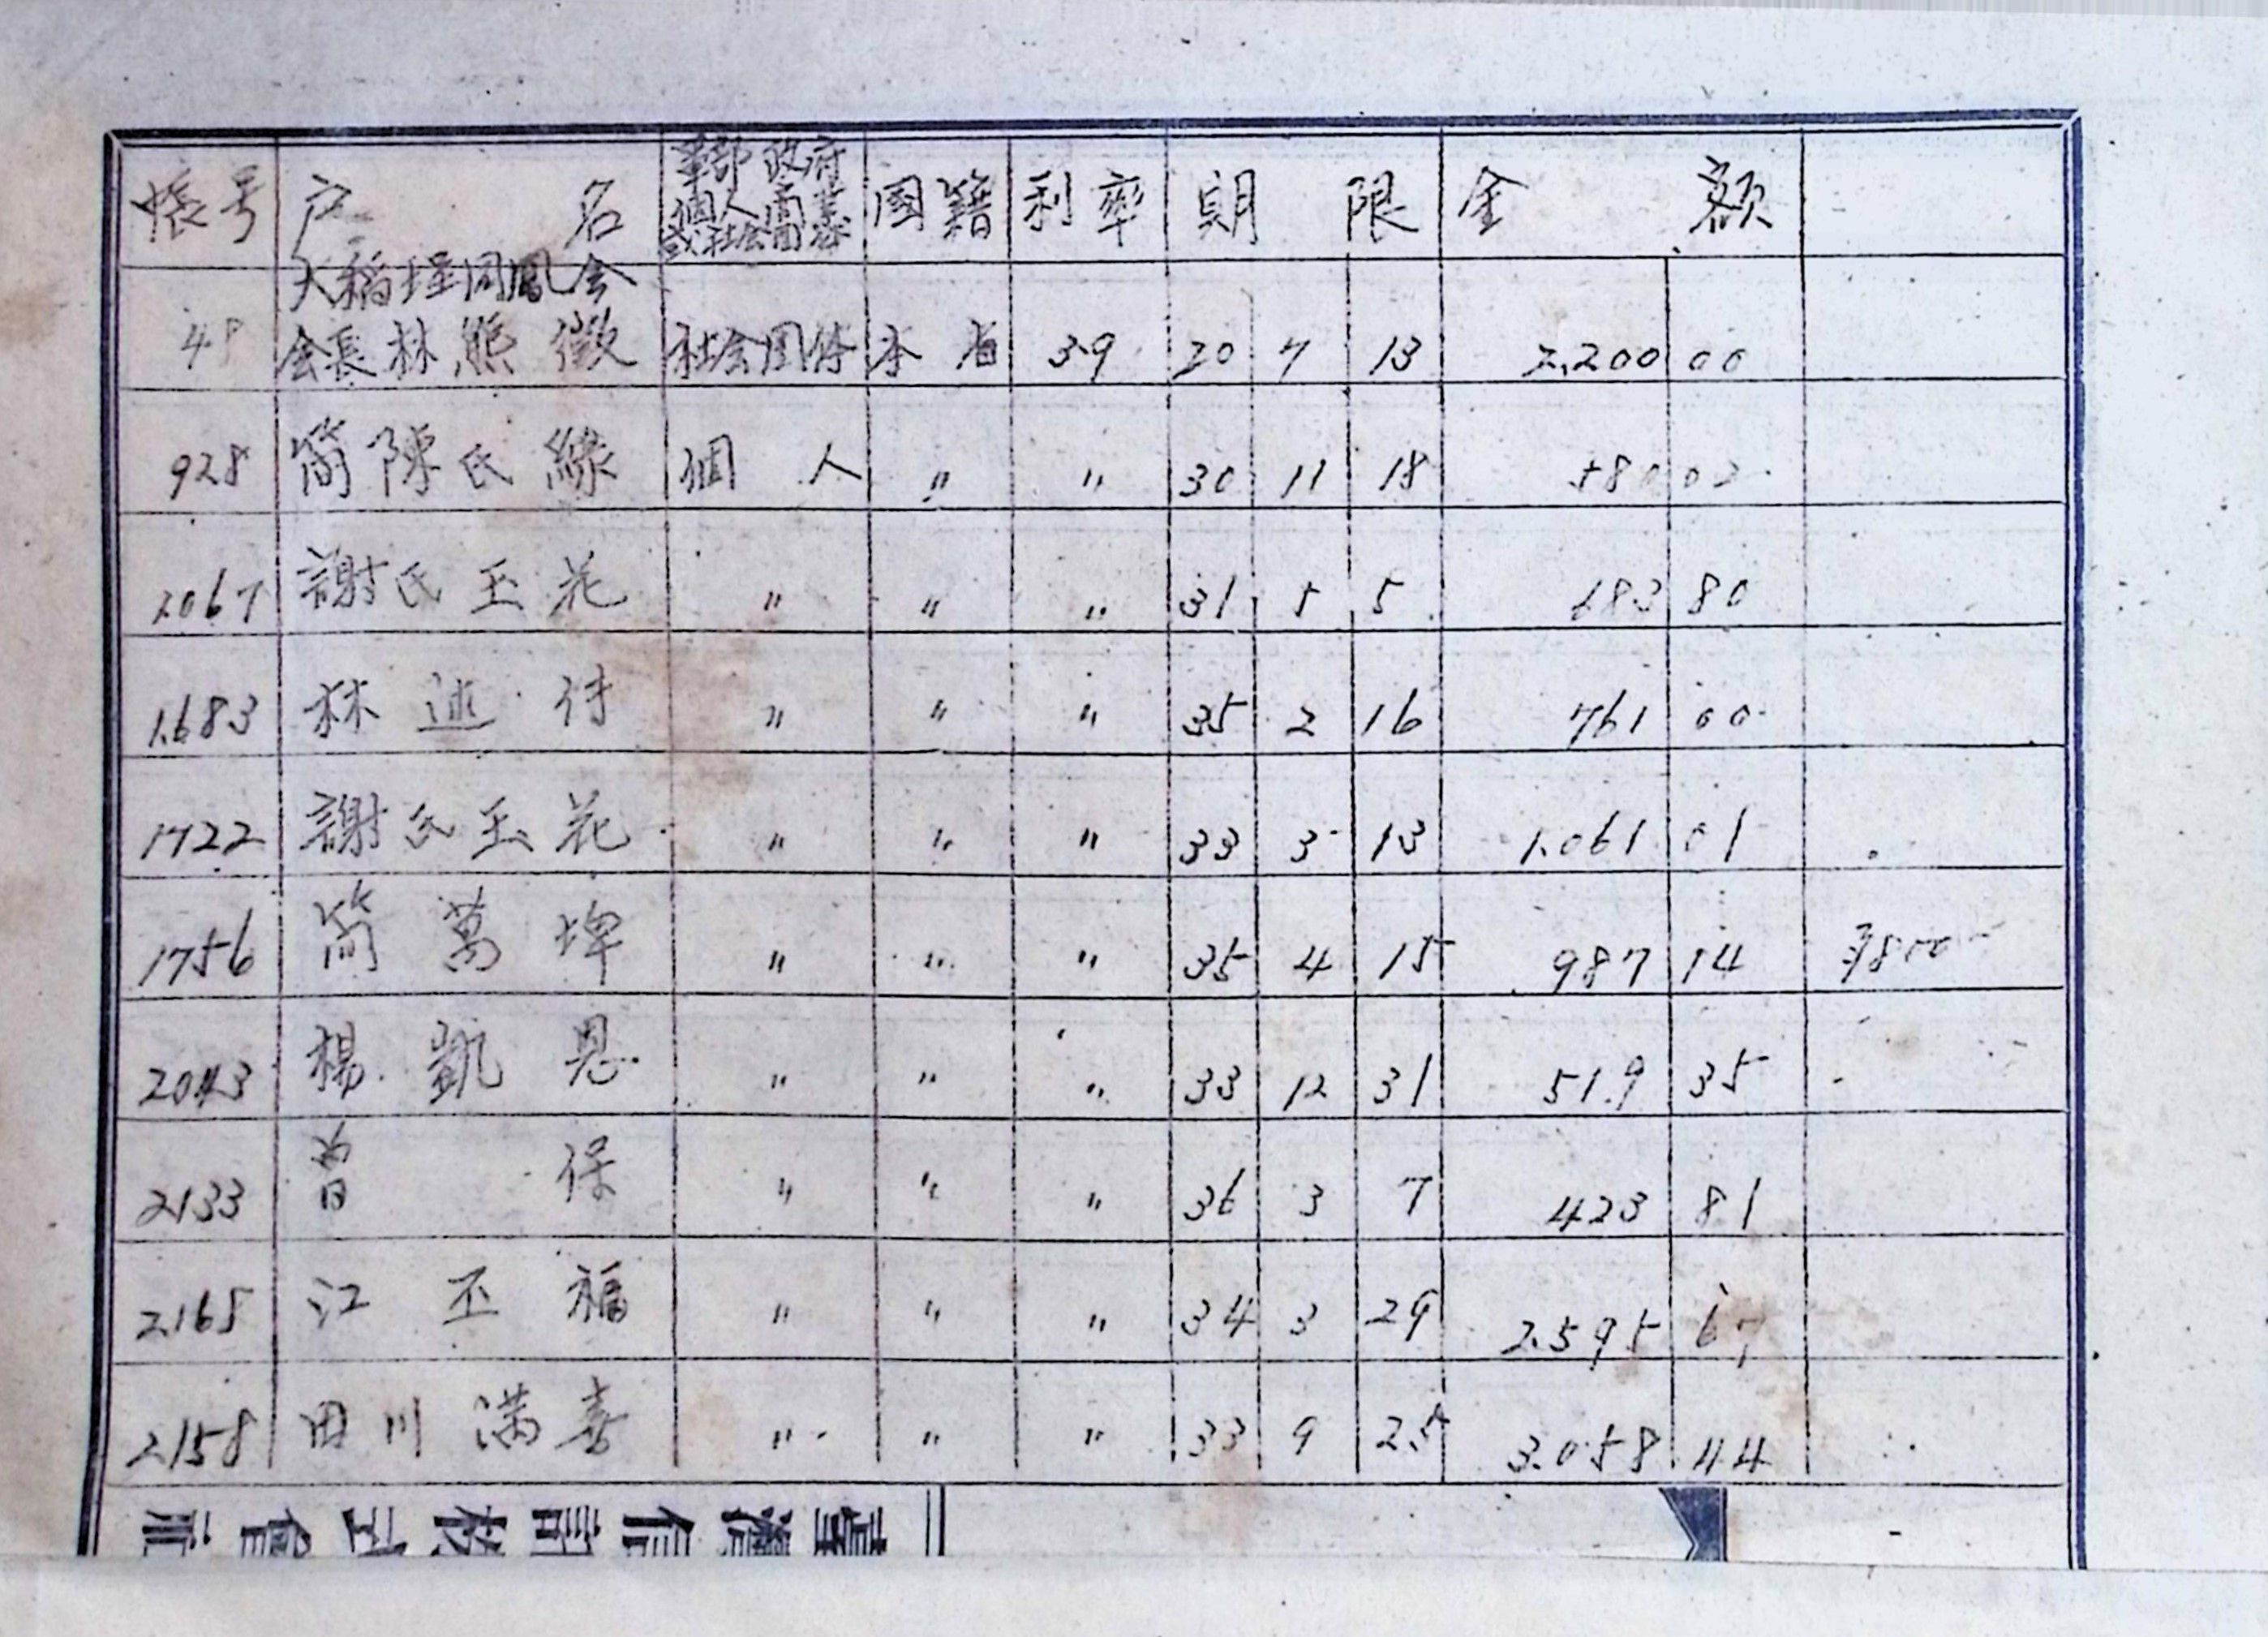 帳号 户名 軍部政府個人商業或社会團体 國籍 利率 期限 金額
大稻埕同風会
会長林熊徵 社会團体 本省 3.9 20 7 13 2,200 00
928 簡陳氏緣 個人 〃 〃 30 11 18
1.067 謝氏玉花 〃 〃 〃 31 5 5 83 80
1.683 林述待 〃 〃 〃 35 2 16 761 00
1722 謝氏玉花 〃 〃 〃 33 3 13 1.061 01
1756 簡萬埤 〃 〃 〃 35 4 15 987 14
2043 楊凱恩 〃 〃 〃 33 12 31 519 35
2133 曾保 〃 〃 〃 36 3 7 423 81
2165 江丕福 〃 〃 〃 34 3 29 2.595 67
2158 田川満喜 〃 〃 〃 33 9 25 3.058 44
臺灣信託株式會